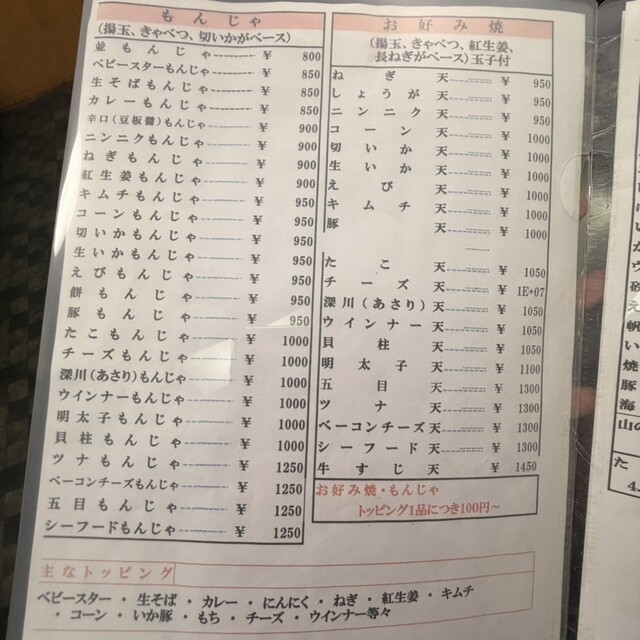 もんじゃ
(揚玉、きゃべつ、切いかがベース)
並もんじゃ ¥ 800
ベビースターもんじゃ ¥ 850
生そばもんじゃ ¥ 850
カレーもんじゃ ¥ 850
辛口(豆板醤)もんじゃ ¥ 900
ニンニクもんじゃ ¥ 900
ねぎもんじゃ ¥ 900
紅生姜もんじゃ ¥ 900
キムチもんじゃ ¥ 950
コーンもんじゃ ¥ 950
切いかもんじゃ ¥ 950
生いかもんじゃ ¥ 950
えびもんじゃ ¥ 950
餅もんじゃ ¥ 950
豚もんじゃ ¥ 950
たこもんじゃ ¥ 1000
チーズもんじゃ ¥ 1000
深川(あさり)もんじゃ ¥ 1000
ウインナーもんじゃ ¥ 1000
明太子もんじゃ ¥ 1000
貝柱もんじゃ ¥ 1000
ツナもんじゃ ¥ 1250
ベーコンチーズもんじゃ ¥ 1250
五目もんじゃ ¥ 1250
シーフードもんじゃ ¥ 1250
お好み焼
(揚玉、きゃべつ、紅生姜、
長ねぎがベース)玉子付
ねぎ天 ¥ 950
しょうが天 ¥ 950
ニンニク天 ¥ 950
コーン天 ¥ 1000
切いか天 ¥ 1000
生いか天 ¥ 1000
えび天 ¥ 1000
キムチ天 ¥ 1000
豚天 ¥ 1000
たこ天 ¥ 1050
チーズ天 ¥ 1E+07
深川(あさり)天 ¥ 1050
ウインナー天 ¥ 1050
貝柱天 ¥ 1050
明太子天 ¥ 1100
五目天 ¥ 1300
ツナ天 ¥ 1300
ベーコンチーズ天 ¥ 1300
シーフード天 ¥ 1300
牛すじ天 ¥ 1450
お好み焼・もんじゃ
トッピング1品につき100円~
主なトッピング
ベビースター ・ 生そば ・ カレー ・ にんにく ・ ねぎ ・ 紅生姜 ・ キムチ
・ コーン ・ いか豚 ・ もち ・ チーズ ・ ウインナー等々